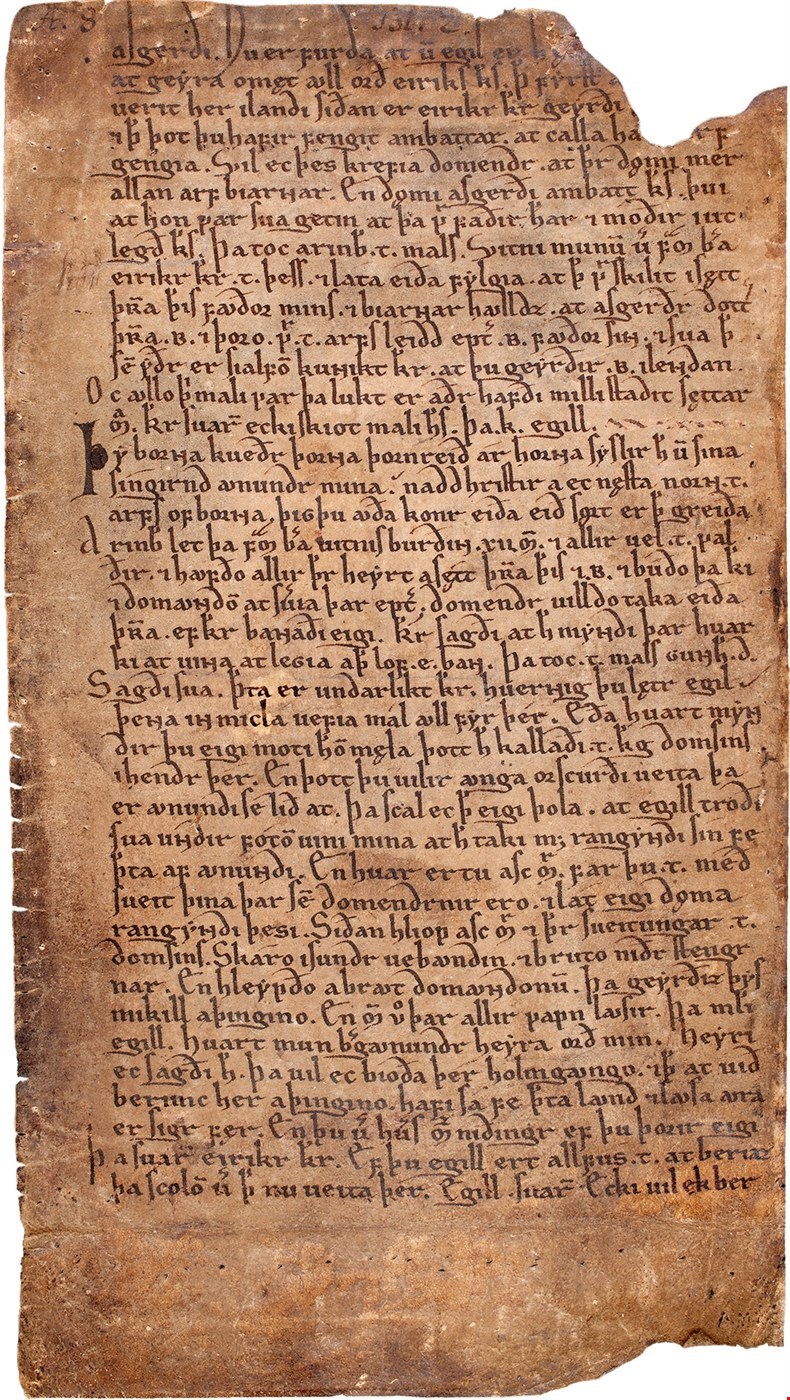 asgerdi. Nu er ꝼurda at ū egil er
at geẏra omęt ꜹll ord eiriks ks. þ ꝼẏrst
uerit her ilandi sidan er eirikr kr geẏrdi
⁊ þ þot þu haꝼir ꝼengit ambattar. at calla
gengia. Vil ec þes kreꝼia domendr. at þr dǫmi mer
allan arꝼ biarnar. En dǫmi asgerdi ambatt ks. þui
at hon ꝩar sua getin at þa ꝼadir har ⁊ modir iut
legd ks. Þa toc arinb. t. mals. Vitni munū ꝼᷓm b̓a
eirikr kr. t. þess. ⁊ lata eida ꝼẏlgia. at þ skilit isętt
þra þis ꝼꜹdor mins. ⁊ biarnar hꜹlldz. at asgerdr dott
þra. B. ⁊ þoro. t. arꝼs leidd ept. B. ꝼꜹdor sin. ⁊ sua þ
sē ẏdr er sialꝼō kunikt kr. at þu geẏrdir. B. ilendan.
Oc ꜹllo þ mali ꝩar þa lukt er adr haꝼdi milli stadit sęttar
kr suar ecki skiot mali hs. Þa. k. egill.
Þẏ borna kuedr þorna þornreid ar horna sẏslir h ū sina
singirnd ꜹnundr mina. naddhristir a ec nęsta norn. t.
arꝼs oꝼ borna, þig þu ꜹda konr eida eid sǫrt er þ greida
Arinb let þa ꝼᷓm b̓a uitnis burdin. xii. ⁊ allir uel. t. ꝩal
dir. ⁊ hꜹꝼdo allir þr heẏrt a sętt þra þis ⁊ .B. ⁊ budo þa ki
⁊ domꜹndō at suia þar ept. domendr uilldo taka eida
þra. eꝼ kr banadi eigi. Kr sagdi at h mẏndi þar huar
ki at uina at legia a þ loꝼ. e. ban. Þa toc. t. mals gunh. d.
Sagdi sua. Þta er undarlikt kr. huernig þu lętr egil
þena in micla ueꝼia mal ꜹll ꝼẏr þer. Eda huart mẏn
dir þu eigi moti hō męla þott h kalladi. t. kg domsins
ihendr þer. En þott þu uilir ꜹnga orscurdi ueita þa
er ꜹnundi se lid at. Þa scal ec þ eigi þola. at egill trodi
sua undir ꝼotō uini mina at h taki mꝫ rangẏndi sin ꝼe
þta aꝼ ꜹnundi. En huar ertu asc ꝼar þu. t. med
sueit þina þar sē domendrnir ero. ⁊ lat eigi dǫma
rangẏndi þesi. Sidan hliop asc ⁊ þr sueitungar. t.
domsins. Skaro isundr uebꜹndin. ⁊ bruto nidr stengr
nar. En hleẏpdo abrꜹt domꜹndonū. Þa geẏrdiz þẏs
mikill aþingino. En þar allir ꝩapn lꜹsir. Þa mli
egill. huart mun bꜹnundr heẏra ord min. Heẏri
ec sagdi h. Þa uil ec bioda þer holmgꜹngo. ⁊ þ at uid
berimc her aþingino. haꝼi sa ꝼe þta lꜹnd ⁊ lꜹsa aura
er sigr ꝼęr. En þu hūs nidingr eꝼ þu þorir eigi
Þa suar eirikr kr. Eꝼ þu egill ert allꝼus. t. at beriaz
þa scolō þ nu ueita þer. Egill suar Ecki uil ek ber